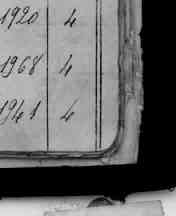 1920 4
1968 4
1941 4